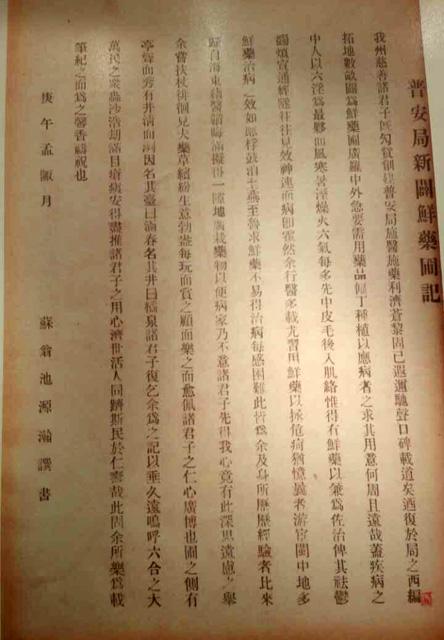 普安局新闢鮮藥圃記
我州慈善諸君子既匄貲創建普安局施醫施藥利濟蒼黎固已遐邇馳聲口碑載道矣迺復於局之西編
拓地數畝闢為鮮藥圃廣羅中外急要需用藥品僱丁種植以應病者之求其用意何周且遠哉蓋疾病之
中人以六淫為最夥而風寒暑溼燥火六氣每多先中皮毛後入肌絡惟得有鮮藥以兼為佐治俾其祛鬱
蠲煩宣通經隧往往見效神速而病即霍然余行醫多載尤習用鮮藥以拯危疴猶憶曩者游宦閩中地多
鮮藥治病之效如響桴鼓洎北燕至魯求鮮藥不易得治病每感困難此皆為余及身所歷歷經驗者比來
歸自海東藉醫韜晦滿擬得一隙地廣栽藥物以便病家乃不意諸君子先得我心竟有此深思遠慮之舉
余嘗扶杖徘徊見夫藥草繽紛生意勃盎每玩而賞之顧而樂之而愈佩諸君子之仁心廣博也圃之側有
亭聳而秀有井清而冽因名其臺曰論春名其井曰橘泉諸君子復乞余為之記以垂久遠嗚呼六合之大
萬民之眾蟲沙浩劫滿目瘡痍安得盡推諸君子之用心濟世活人同躋斯民於仁壽哉此固余所樂為載
筆紀之而為之馨香禱祝也
庚午孟陬月
蘇翁池源瀚譔書